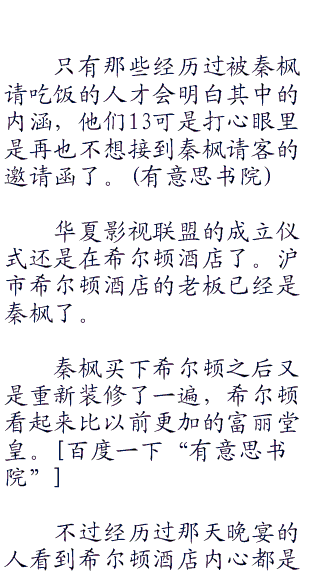 只有那些经历过被秦枫
请吃饭的人才会明白其中的
内涵，他们13可是打心眼里
是再也不想接到秦枫请客的
邀请函了。(有意思书院)
华夏影视联盟的成立仪
式还是在希尔顿酒店了。沪
市希尔顿酒店的老板已经是
秦枫了。
秦枫买下希尔顿之后又
是重新装修了一遍，希尔顿
看起来比以前更加的富丽堂
皇。[百度一下“有意思书
院”]
不过经历过那天晚宴的
人看到希尔顿酒店内心都是